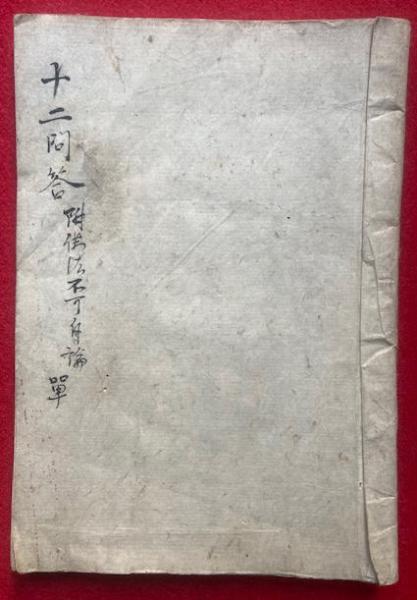 十二問答 附法不可論 單